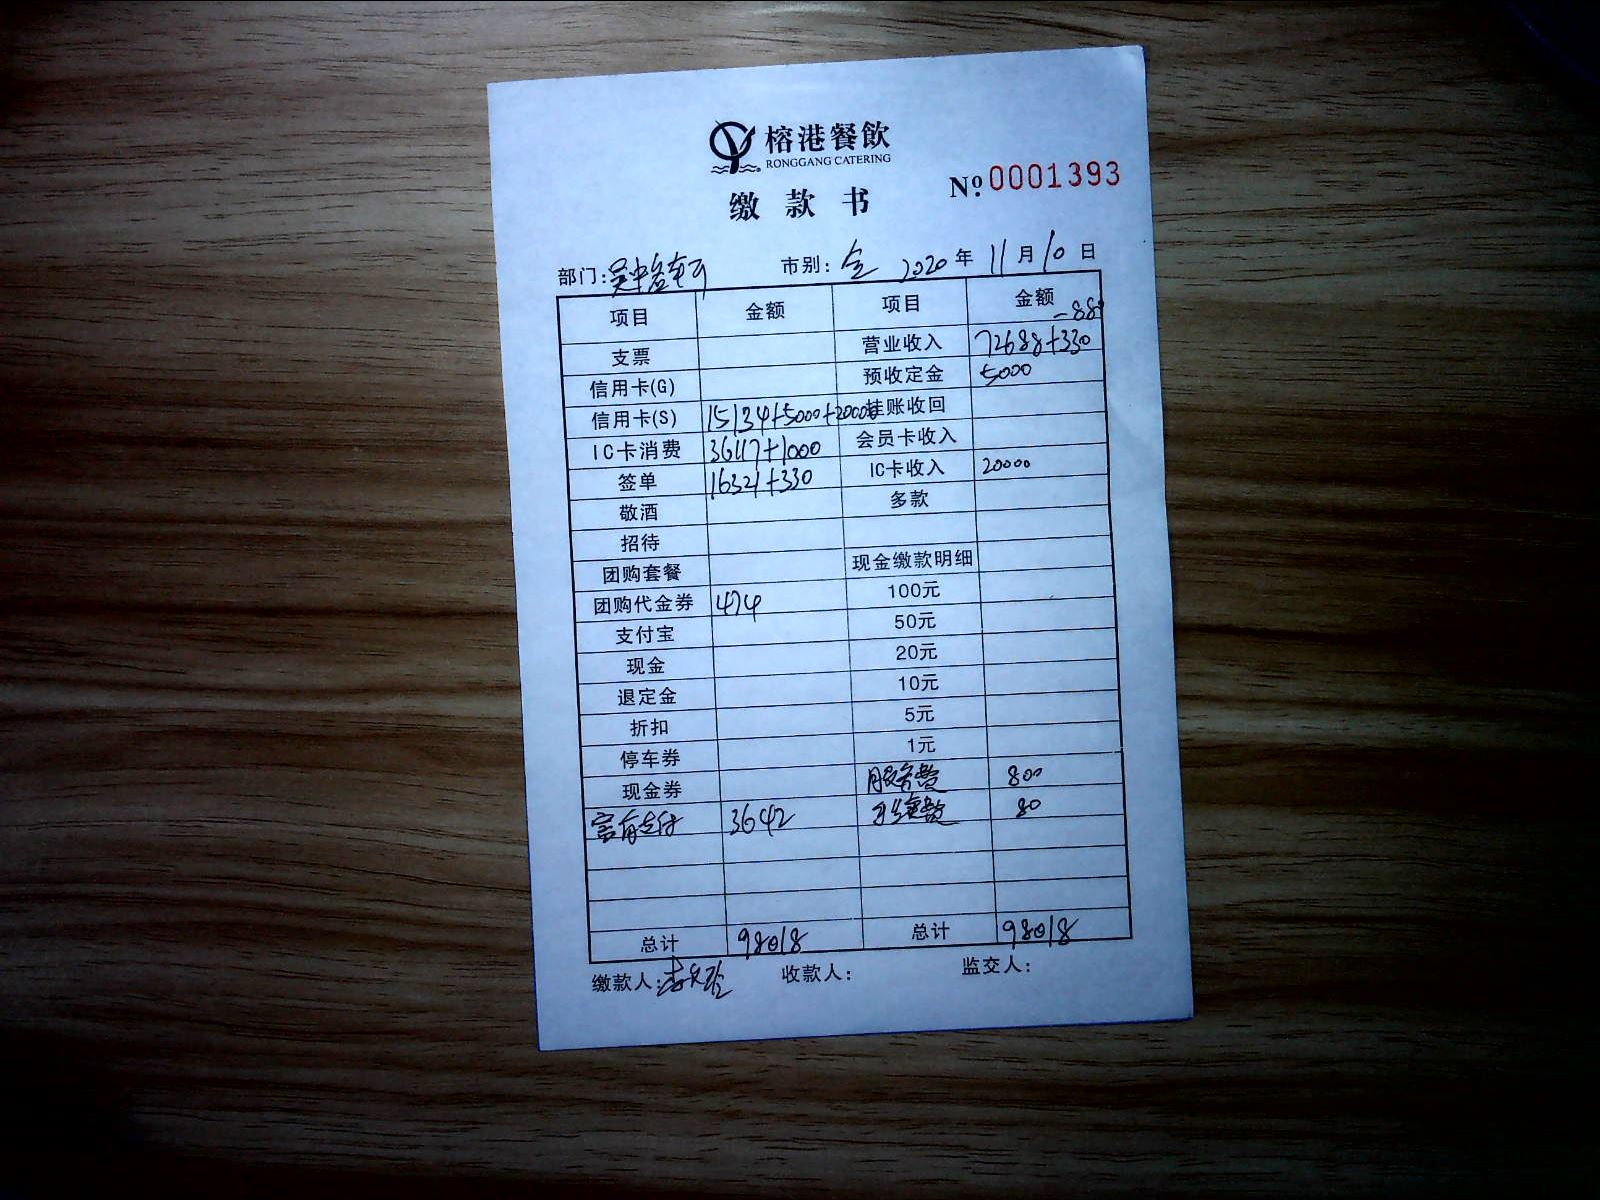 榕港餐飲
RONGGANG CATERING
缴款书
№.0001393
部门: 市别: 全 2020年11月10日
项目 金额 项目 金额
-880
支票 营业收入 72688+330
信用卡(G) 预收定金 5000
信用卡(S) 15134+5000+20000 挂账收回
IC卡消费 36117+1000 会员卡收入
签单 16321+330 IC卡收入 20000
敬酒 多款
招待
团购套餐 现金缴款明细
团购代金券 474 100元
支付宝 50元
现金 20元
退定金 10元
折扣 5元
停车券 1元
现金券 服务费 800
富有支付 3642 手续费 80
总计 98018 总计 98018
缴款人: 收款人: 监交人: